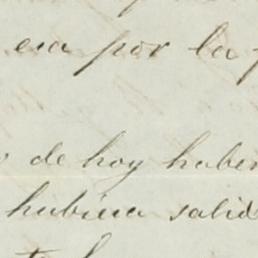 esa por la
de hoy haber
hubiera salid